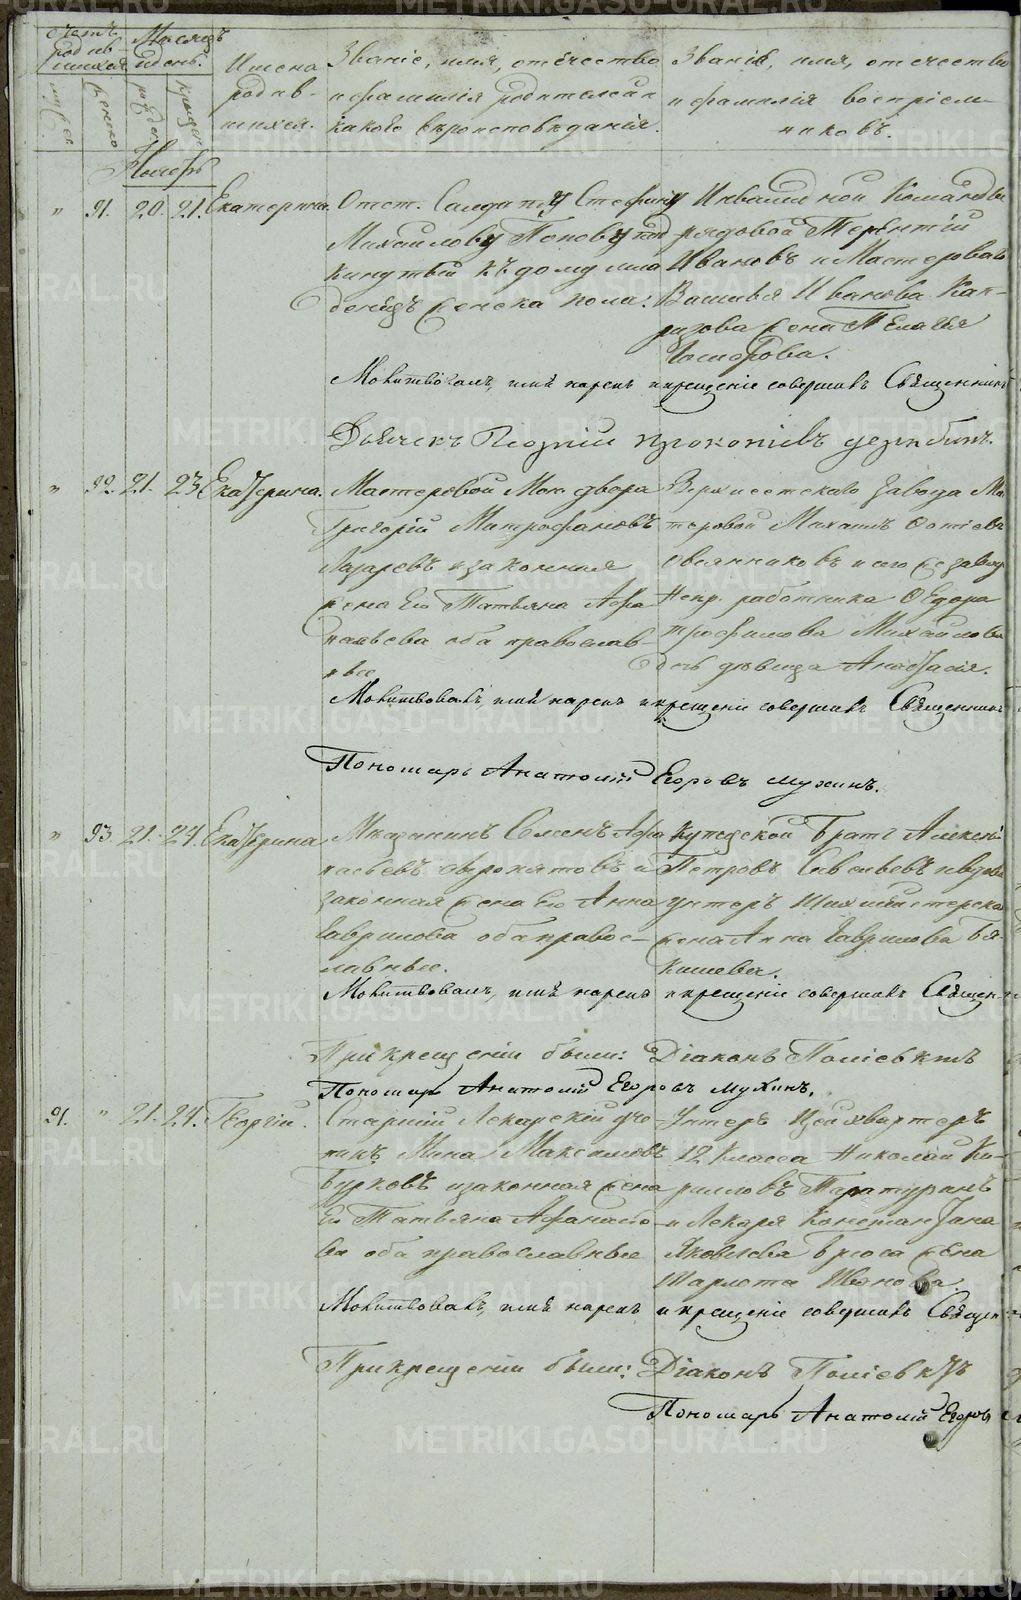 Счетъ родив-шихся
Мѣсяцъ и день.
Имена родив-шихся.
Званіе, имя, отчество
и фамилія родителей и
какого вѣроисповѣданія.
Званіе, имя, отчество
и фамилія воспріем-
никовъ.
мужеск
женско
рожден
крещен
Ноябрь
" 91. 20. 21. Екатерина.
Отст. Салдату Стефану
Михайлову Попову под
кинутый къ дому мла
денецъ женска пола.
Инвалидной Команды
рядовой Терентій
Ивановъ и Мастероваго
Василья Иванова Кан-
жена Пелагея
Молитвовалъ, имя нарекъ и крещеніе совершилъ Священникъ
Дьячекъ Прокопіевъ
" 92. 21. 23 Екатерина.
Мастеровой Мон. двора
Григорій Митрофановъ
Лазаревъ и законная
жена Его Татьяна Афа
насьева оба православ
ные
Верхисетскаго завода Ма
стеровой Михаилъ Фотіевъ
Овсянниковъ и того же завод
Непр. работника Федора
Трофимова Михайлова
дочь дѣвица Анастасія.
Молитвовалъ, имя нарекъ и крещеніе совершилъ Священникъ
Пономарь Анатолій Егоровъ Мухинъ.
" 93 21. 24. Екатерина
Мещанинъ Семенъ Афа
насьевъ и
законная жена Его Анна
Гаврилова оба право-
славные.
Купеческой Братъ Алексѣй
Петровъ Савельевъ и
унтеръ Шихтмейстерска
жена Анна Гаврилова
Молитвовалъ, имя нарекъ и крещеніе совершилъ Священ
При крещеніи были: Діаконъ Поліевктъ
Пономарь Анатолій Егоровъ Мухинъ.
91. " 21. 24. Георгій.
Старшій Лекарскій уче-
никъ Мина Максимовъ
Бурковъ и законная жена
Его Татьяна Афанасье-
ва оба православные
Унтеръ Цейхвартеръ
12 Класса Николай Ки-
рилловъ
и Лекаря Константина
Яковлева жена
Шарлота Иванова
Молитвовалъ, имя нарекъ и крещеніе совершилъ Священ
При крещеніи были: Діаконъ Поліевктъ
Пономарь Анатолій Егоровъ
METRIKI.GASO-URAL.RU